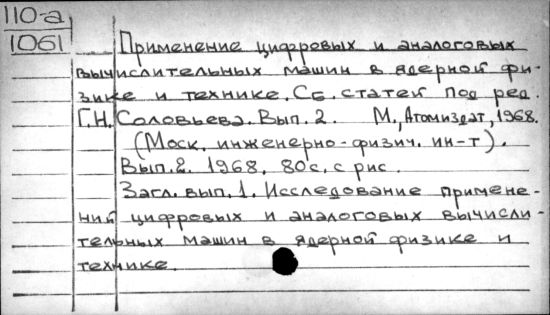 110-а
1061
Применение цифровых и аналоговых
вычислительных машин в ядерной фи-
зике и технике. Сб. статей под ред.
Г.Н. Соловьева. Вып. 2. М., Атомиздат, 1968.
(Моск. инженерно-физич. ин-т).
Вып. 2. 1968. 80с. с рис.
Загл. вып. 1. Исследование примене-
ний цифровых и аналоговых вычисли-
тельных машин в ядерной физике и
технике.